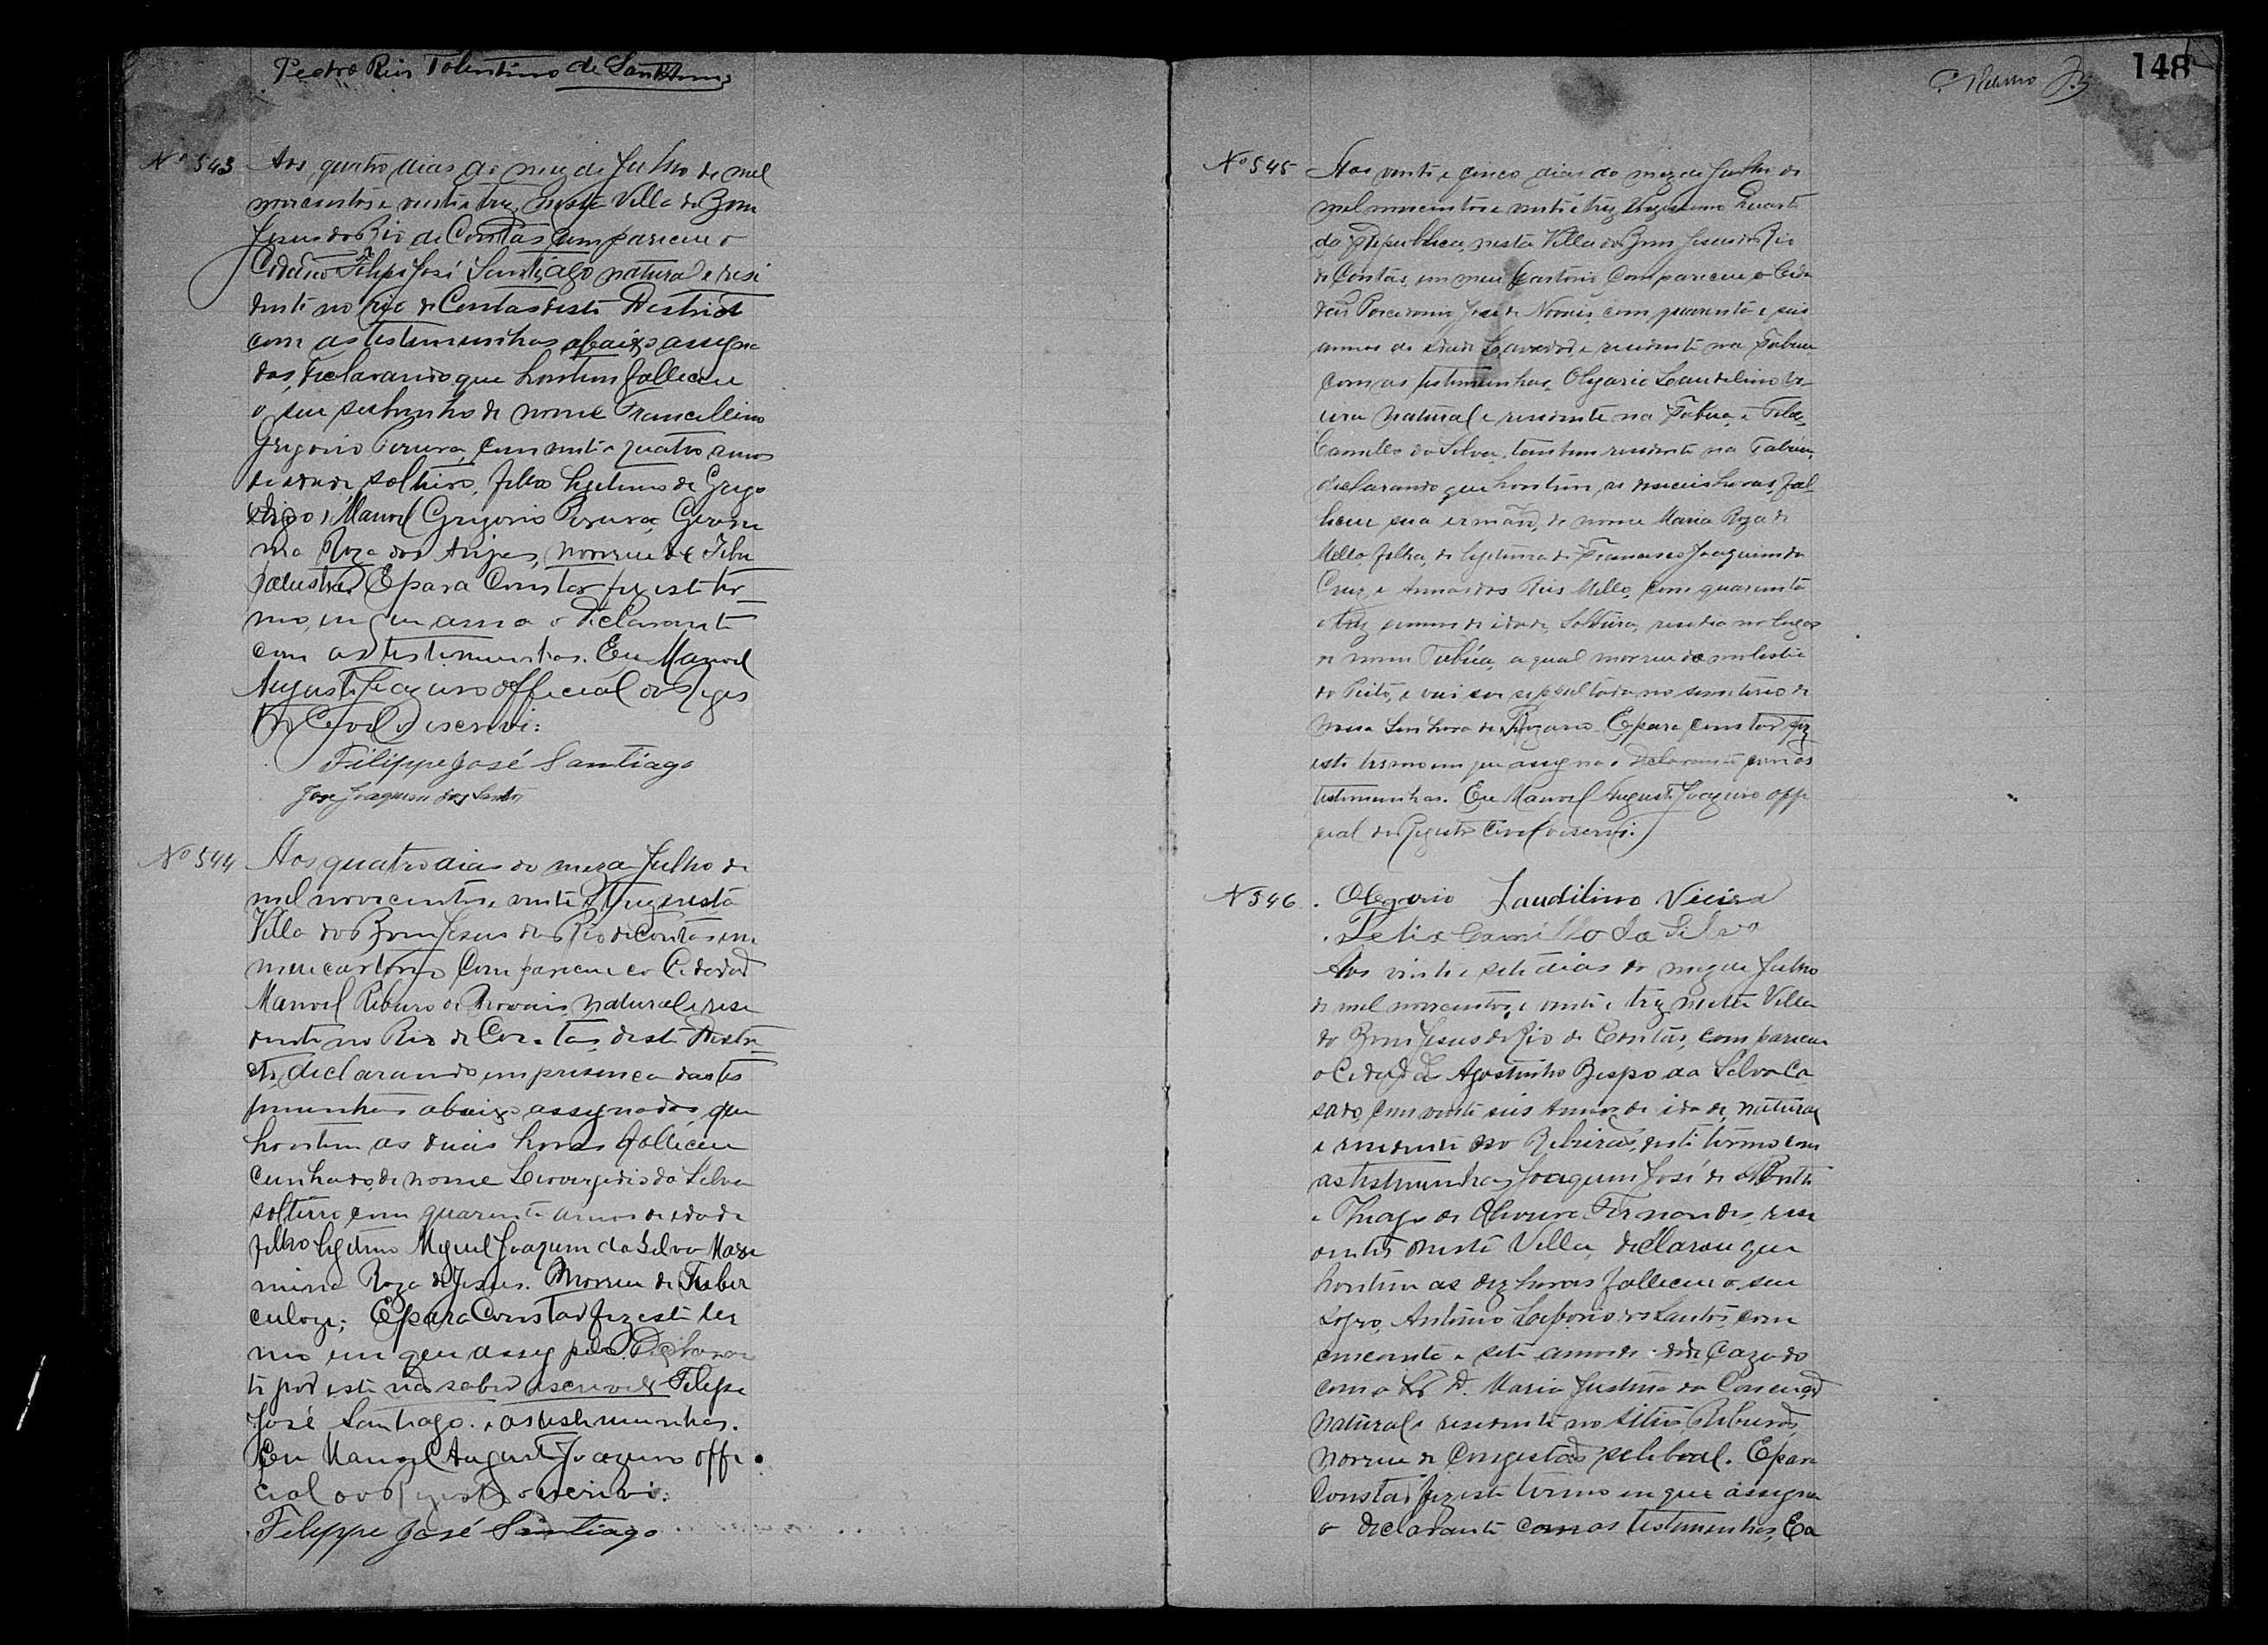 Pedro Reis Tolentino de Sant'Anna
148
Nº 543 Aos quatro dias do mez de Julho de mil
novecentos e vinte e trez, nesta Villa do Bom
Jesus do Rio de Contas compareceu o
Cidadão Filipe José Santiago natural e resi
dente no Rio de Contas deste Destricto
com as testemunhas abaixo assigna
das, declarando que hontem falleceu
o seu sobrinho de nome Francellino
Grigorio Pereira, com vinte quatro annos
de idade, solteiro, filho legitimo de
Manoel Grigorio Pereira, Gero
ma Roza dos Anjos, morreu de Febre
palustre. E para constar fiz este ter
mo, em que assina o declarante
com as testemunhas. Eu Manoel
Augusto Joazeiro official do Regis
tro Civil o escrevi:
Filippe José Santiago
José Joaquim dos Santos
Nº 544 Aos quatro dias do mez de Julho de
mil novecentos e vinte e trez nesta
Villa do Bom Jesus do Rio de Contas em
meu cartorio compareceu o Cidadão
Manoel Ribeiro de Novais, natural e resi
dente no Rio de Contas, deste Destri
to, declarando em presença das tes
temunhas abaixo assignadas, que
hontem as duas horas falleceu
cunhado, de nome Leovergidio da Silva
solteiro com quarenta annos de idade
filho legitimo Miguel Joaquim da Silva Maxi
mina Roza de Jesus. Morreu de Tuber
culoze; E para constar fiz este ter
mo em que assig pelo Declaran
te por este não saber escrever Felipe
José Santiago. e as testemunhas.
Eu Manoel Augusto Joazeiro offi
cial do Registro o escrevi:
Filippe José Santiago
Nº 545 Aos vinte e cinco dias do mez de Julho de
mil novecentos e vinte e trez trigesimo quarto
da Republica, nesta Villa do Bom Jesus do Rio
de Contas, em meu Cartorio compareceu o Cida
dão José de Novais, com quarenta e seis
annos de idade Lavrador e residente na Tabua
com as testemunhas, Olegario Laudelino Vi
eira natural e residente na Tabua, e Felix
Camillo da Silva, tambem residente na Tabua,
declarando que hontem, as horas, fal
leceu sua irmãn, de nome Maria Roza de
Mello, filha, de legitima de Francisco Joaquim da
Cruz, e Anna dos Reis Mello, com quarenta
e trez annos de idade, Solteira, residia no lugar
de nome Tabúa, a qual morreu de molestia
do Peito, e vai ser sepultada no semiterio de
nossa Senhora do Rozario. E para constar fiz
este termo em que assigna o Declarante com as
testemunhas. Eu Manoel Augusto Joazeiro offi
cial do Registro Civil o escrevi.
Nº 546. Olegario Laudilino Vieira
Felix Camillo da Silva
Aos vinte e sete dias do mez de Julho
de mil novecentos, e vinte e trez nesta Villa
do Bom Jesus do Rio de Contas, compareceu
o Cidadão Agostinho Bispo da Silva Ca
sado, com vinte seis annos de idade, natural
e residente no Ribeirão, deste termo com
as testemunhas Joaquim José de
e Thiago de Oliveira Fernandes, resi
dentes nesta Villa, declarou que
hontem as dez horas falleceu o seu
sogro, Antonio Liborio dos Santos, com
cincoenta e sete annos de idade Cazado
com a D. Maria Justina da Conceição
natural e residente no sitio Ribeirão,
morreu de Congestão selebral. E para
constar fiz este termo em que assigna
o declarante com as testemunhas, Eu